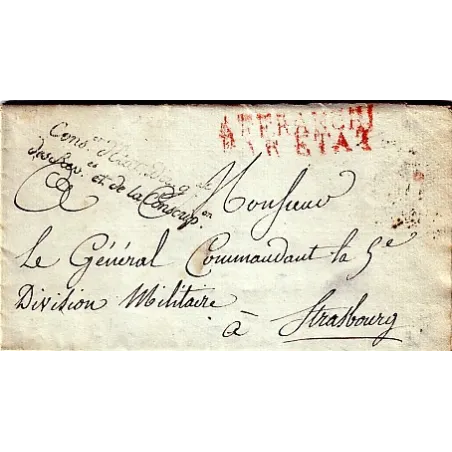 AFFRANCHI
PAR ETAT
Cons.er d'Etat
et de la Conscrip.on
A Monsieur
Le Général Commandant la 5e
Division Militaire
à Strasbourg